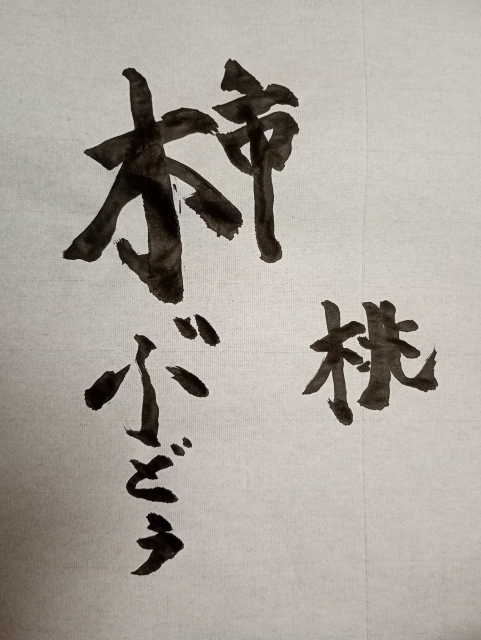 柿
ぶどう
桃